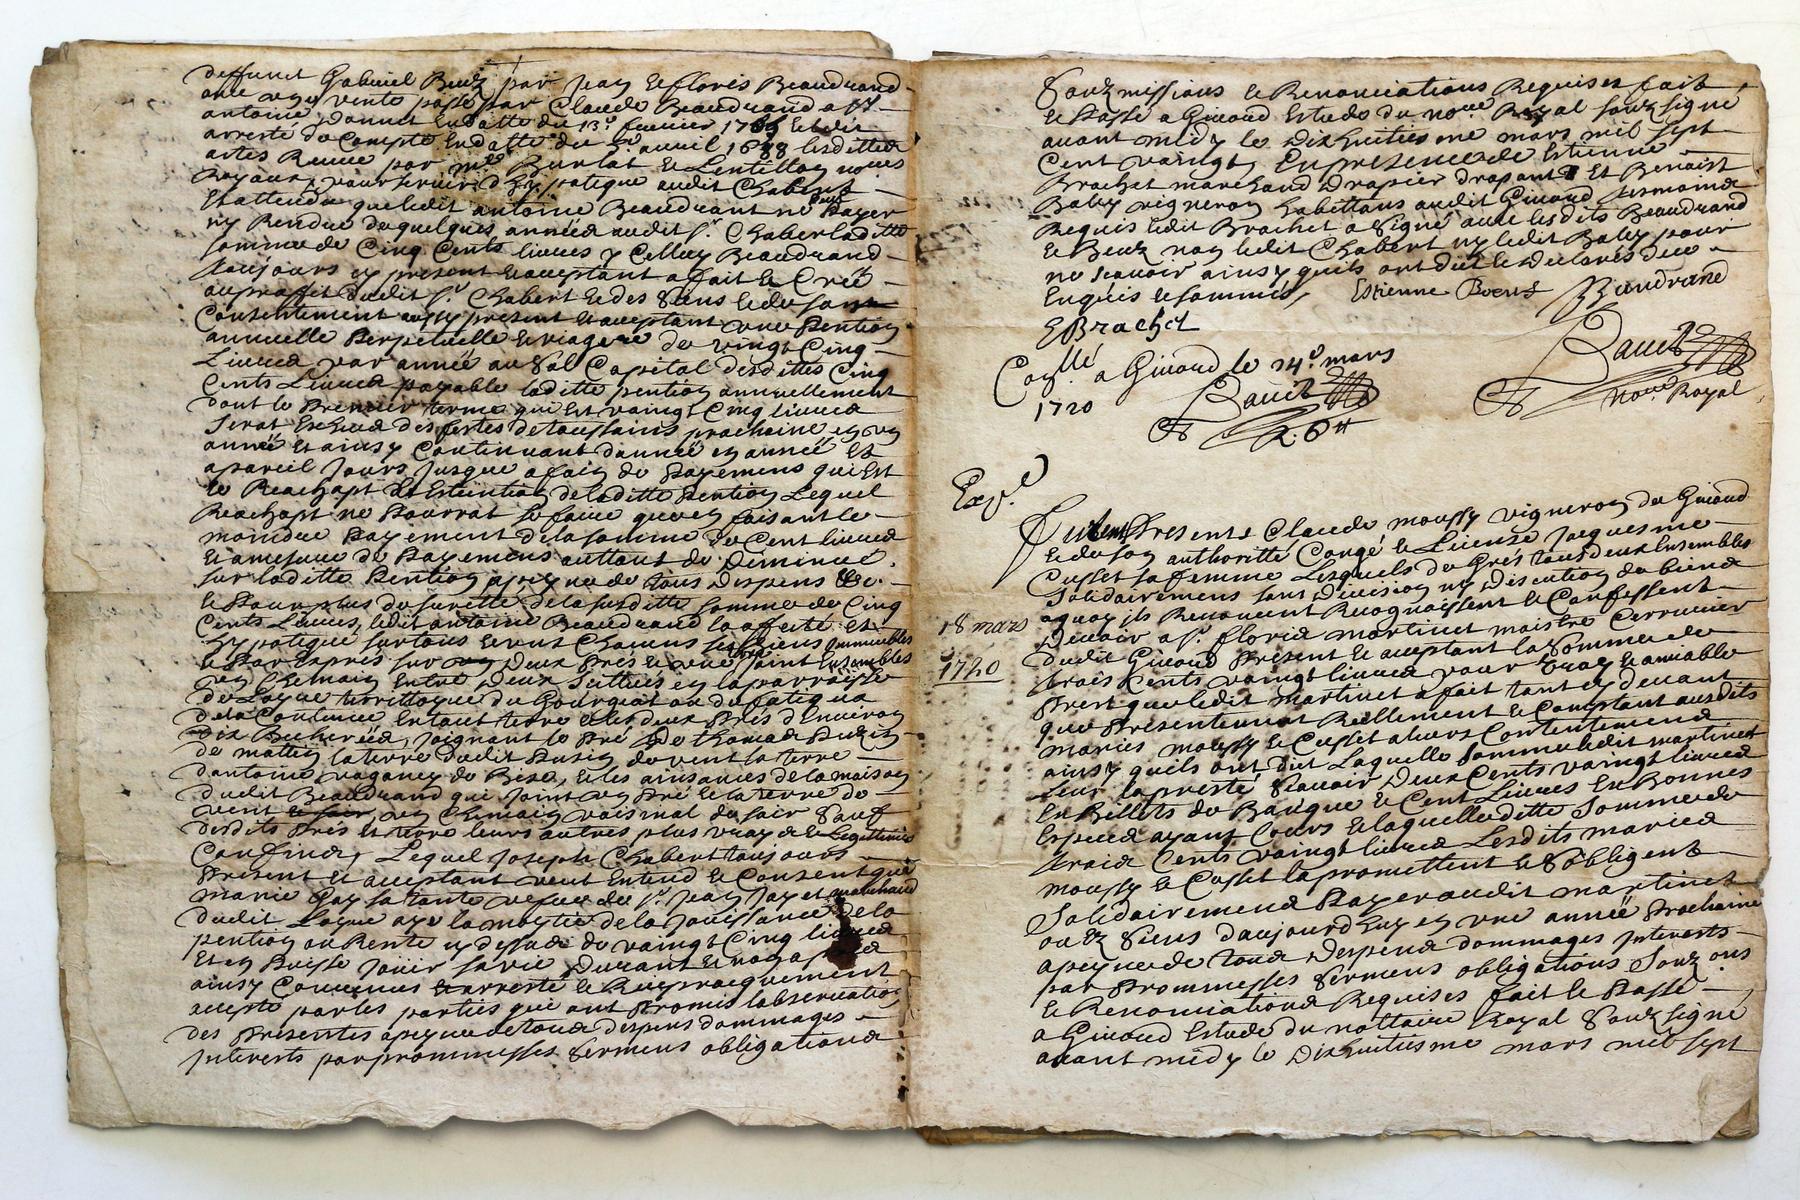 deffunct Gabriel Beuz par Jean Le florés Beaudrand
avec un vente passé par Claude Beaudrand a St
antoine, donnet En datte du 13e feuvrier Et dit
arresté de Compte En datte du avril 1688 lesdittes
actes Receue par me Burlat et Lentillon nores
Royaux, pour servir d'hypotique audit Chabert
Et attendu que ledit antoine Beaudrant ne peut Payer
ny Rendre de quelques année audit sr Chabert laditte
somme de Cinq Cents livres Beaudrand
Toujours cy present Et acceptant a fait Et Créé
au proffit dudit sr Chabert Et des Siens Et de son
Consentement aussy present Et acceptant une Pention
annuelle Perpetuelle de vingt Cinq
Livres par année au Sol Capital desdittes Cinq
Cents Livres payable laditte pention annuellement
dont le Premier terme qui Est vaingt Cinq livres
Serat Escheu des festes de toussains prochaine en un
année Et ainsy Continuant d'année en année Et
a pareil Jours Jusque a fain de Payemens qui Est
le Reachapt Et Estention de laditte Pention Lequel
Reachapt ne Pourrat se faire qu'en faisant le
moindre Payement de la somme de Cent livres
Et a mesure de Payemens auttant de Diminué
sur laditte Pention a peyne de tous Despens
Et Pour plus de suretté de la susditte somme de Cinq
Cents Livres, ledit antoine Beaudrand la affecté Et
hypotiqué sur tous Et uns Chacuns ses Biens Immeubles
Et Par Exprés sur Deux Prés Et une Joint Ensembles
un Chemain Entre Deux Scittués en la parroisse
de Loyre territtoyre du Gourgiat ou du fatig
de la Contenue En tout terre Et les deux Prés d'Environ
dix Bicherées, Joignant le Pré de thomas Puzin
de mattin la terre dudit Puzin de vent la terre
d'antoine vaganey de Bise, Et les ainsances de la maison
dudit Beaudrand qui Joint un Pré Et la terre de
vent un Chemain vaisinal de soir Sauf
desdits Prés Et terre leurs autres plus vrays Et Legittimes
Confins, Lequel Joseph Chabert toujours
Present Et acceptant veut Entend Et Consent que
marie Gay sa tante vefue de sr Jean Jayet marchand
dudit Loyre aye la moytié de la Jouissance de la
pention ou Rente cy dessus de vaingt Cinq livres
Et en Puisse Jouir sa vie Durant
ainsy Convenus Et arresté Et Reciproquement
accepté par les parties qui ont Promis l'observation
des Presentes a peyne de tous despens dommages
Interests par prommesses Sermens obligations
Souz missions Et Renonciations Requises fait
Et Passé a Givord Estude du nore Royal souz signé
avant midy le Dixhuitiesme mars mil sept
Cent vaingt, En presence de Estienne
Brachet marchand Drapier drapant Et Benaist
Baby vigneron habittans audit Givord Tesmoins
Requis ledit Brachet a signé avec lesdits Beaudrand
Et Beuz non ledit Chabert ny ledit Baby pour
ne scavoir ainsy quils ont dit Et Declarés de ce
Enquis Et sommés, Estienne Boeuf Baudrand
EBrachet
a Givord le 24e mars
1720
nore Royal
Exp.é
furent Presents Claude moussy vigneron de Givord
Et de son authoritté Congé Et License Jacquesme
Cusset sa femme Lesquels de Grés tous deux Ensembles
Solidairemens sans Division ny Discution de biens
a quoy ils Renoncent Recognaissent Et Confessent
18 mars
1720
Devoir a sr floris martinet maistre Cerrurier
dudit Givord Present Et acceptant la Somme de
trois Cents vaingt livres pour vray Et amiable
Prest que ledit martinet a fait tant cy devant
que Presentement Reellement Et Comptant ausdits
mariés moussy Et Cusset a leurs Contentemens
ainsy quils ont dit Laquelle Somme ledit martinet
leur la presté Scavoir Deux Cents vaingt livres
En Billets de Banque Et Cent Livres En Bonnes
Especes ayant Cours Et laquelle ditte Somme de
trois Cents vaingt livres Lesdits mariés
moussy Et Cusset la promettent Et S'obligent
Solidairemens Payer audit martinet
ou Ez Siens d'aujourd'huy en une année Prochaine
a peyne de tous Despens dommages Interests
par Prommesses Sermens obligations Souz ons
Et Renonciations Requises fait Et Passé
a Givord Estude du nottaire Royal Souz signé
avant midy le Dixhuitiesme mars mil sept